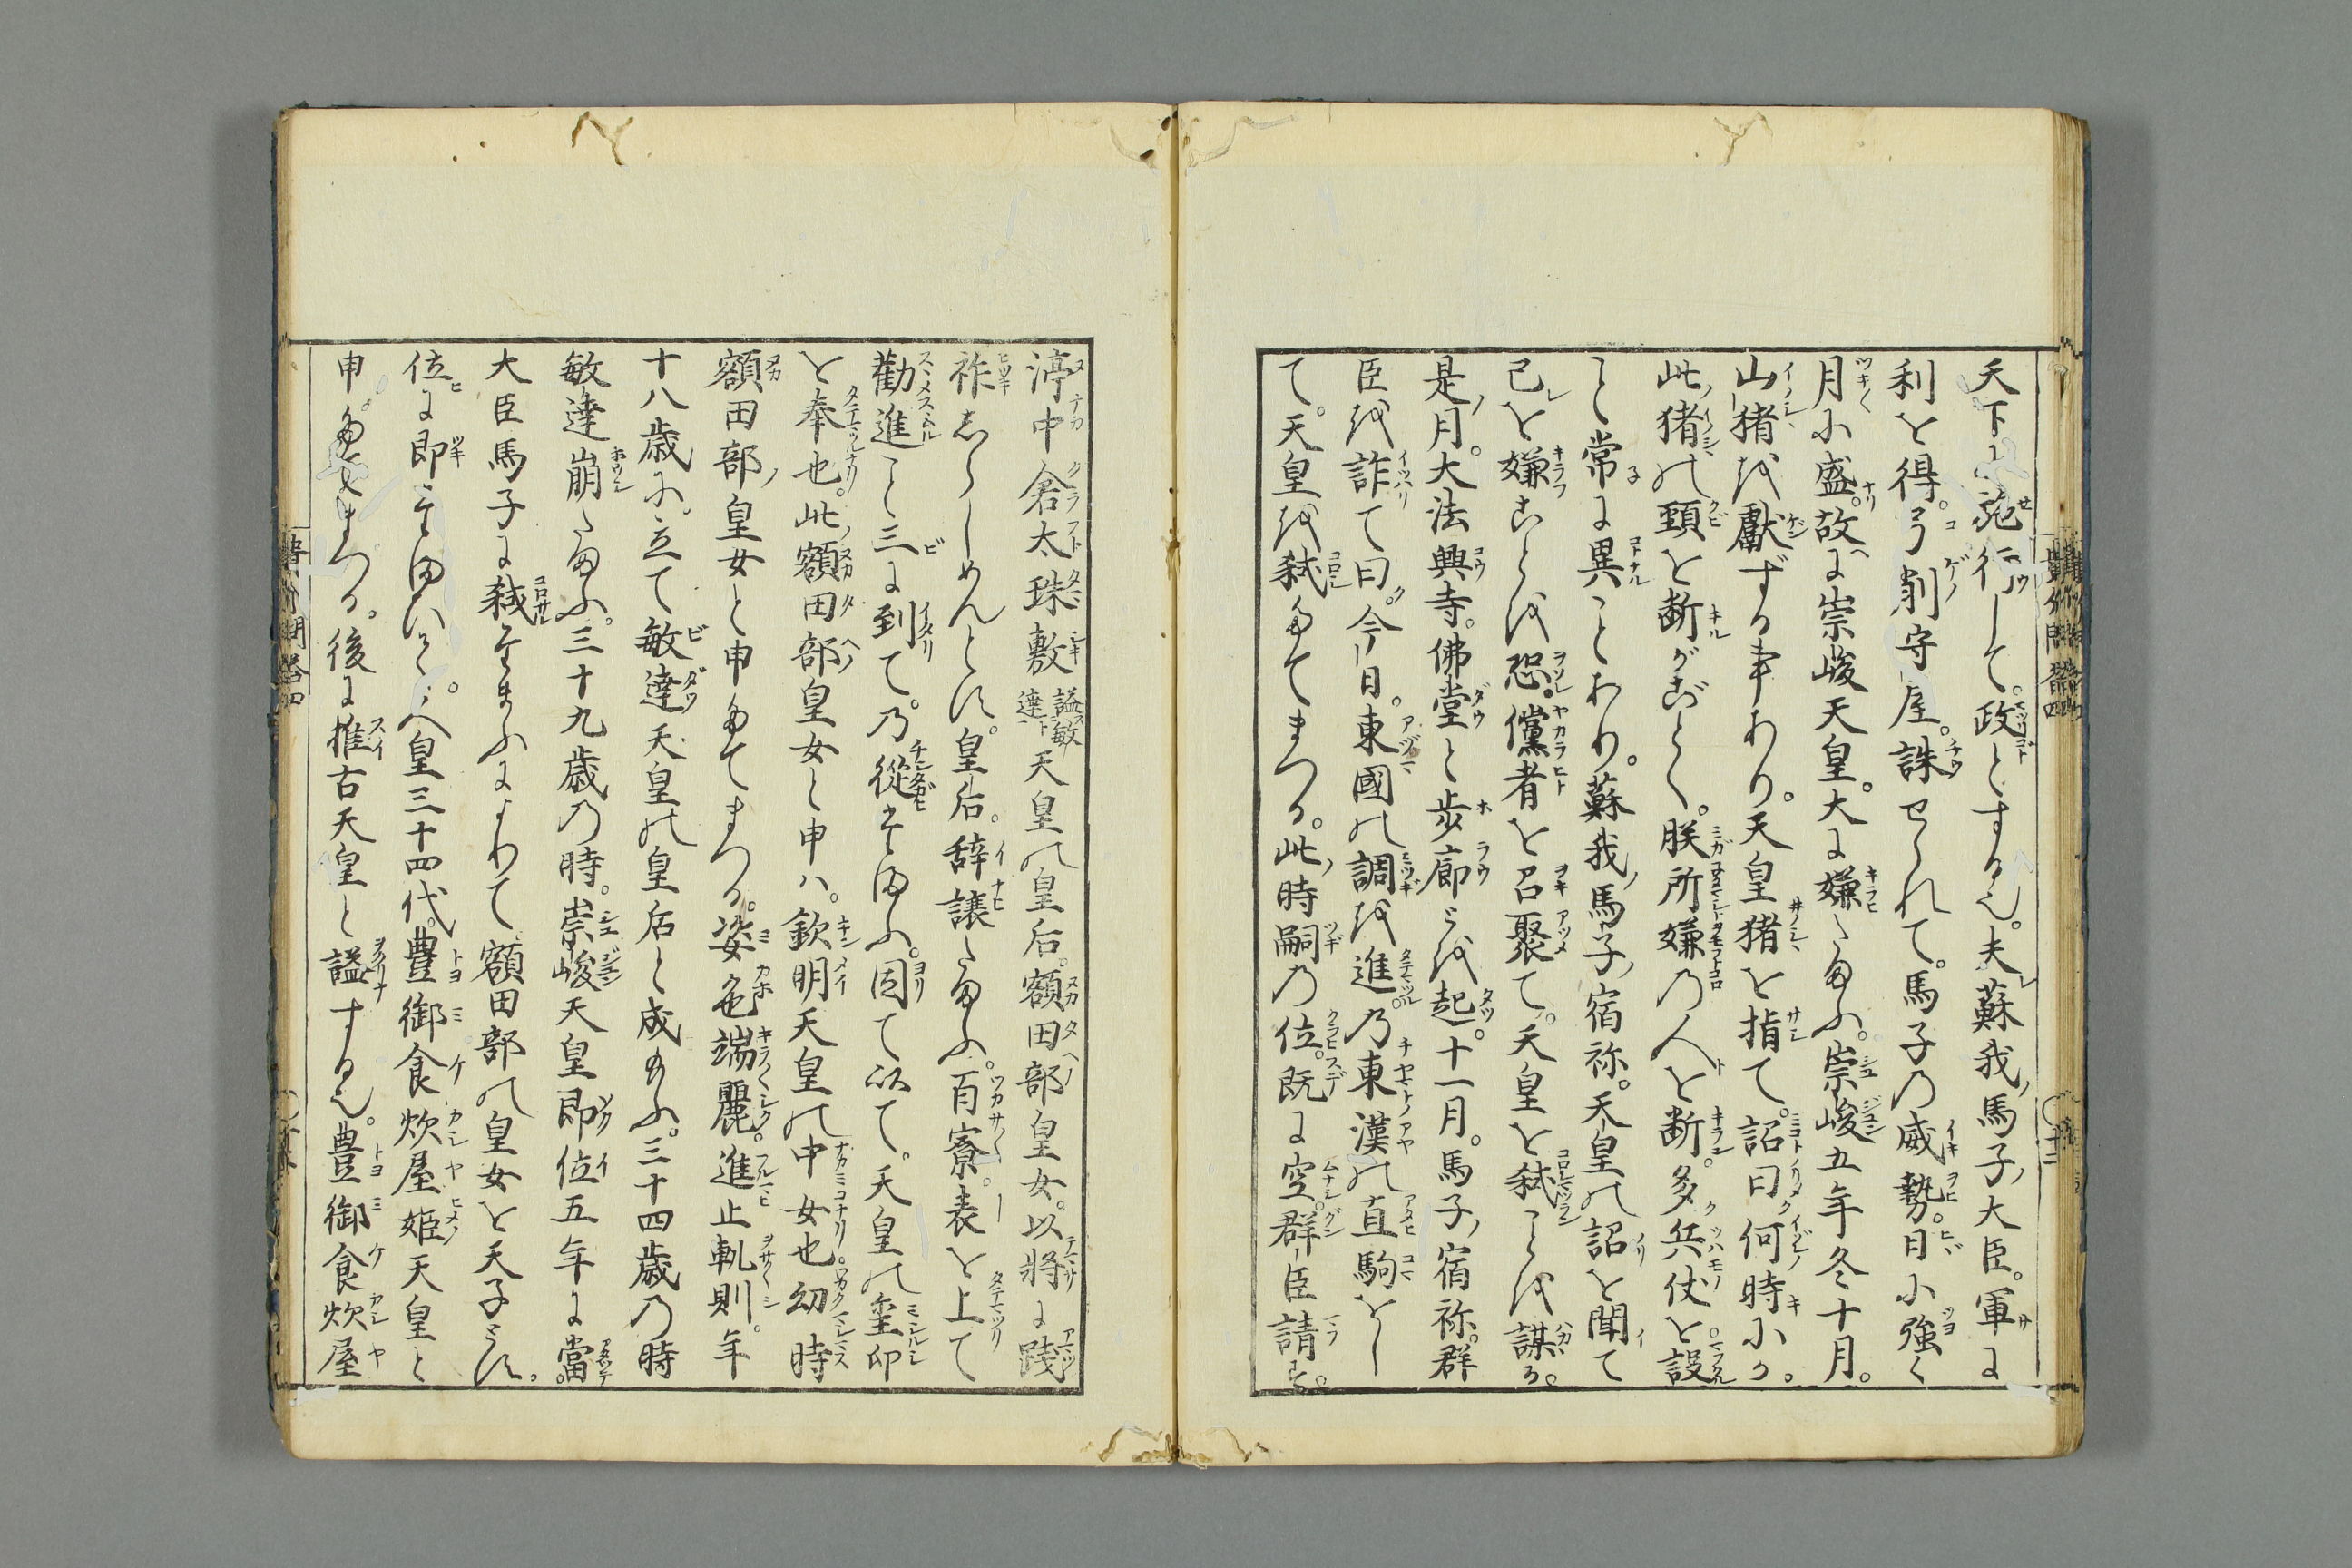 天下に施行して。政とする也。夫蘇我馬子大臣。軍に
利を得。弓削守屋。誅せられて。馬子乃威勢。日に強く
月に盛。故に崇峻天皇。大に嫌たまふ。崇峻五年冬十月。
山猪を獻ずる事あり。天皇猪を指て。詔曰何時にか。
此猪の頸を断がごとく。朕所嫌乃人を断。多兵仗を設
こと常に異ことあり。蘇我馬子宿祢。天皇の詔を聞て
己を嫌ことを恐。儻者を召聚て。天皇を弑ことを謀る。
是月。大法興寺。佛堂と歩廊とを起。十一月。馬子宿祢。群
臣を詐て曰。今日。東國の調を進。乃東漢の直駒をし
て。天皇を弑たてまつる。此時嗣乃位。既に空。群臣請す。
渟中倉太珠敷謚敏達天皇の皇后。額田部皇女。以將に踐
祚あらしめんとす。皇后。辞譲たまふ。百寮。表を上て
勸進こと三に到て。乃從たまふ。因て以て。天皇の璽印
を奉也。此額田部皇女と申ハ。欽明天皇の中女也幼時
額田部皇女と申たてまつる。姿色端麗。進止軌則。年
十八歳に。立て敏達天皇の皇后と成給ふ。三十四歳乃時
敏達崩たまふ。三十九歳乃時。崇峻天皇即位五年に當。
大臣馬子に弑たまふによりて。額田部の皇女を天子とす。
位に即たまひて。人皇三十四代。豊御食炊屋姫天皇と
申たてまつる。後に推古天皇と謚する也。豊御食炊屋